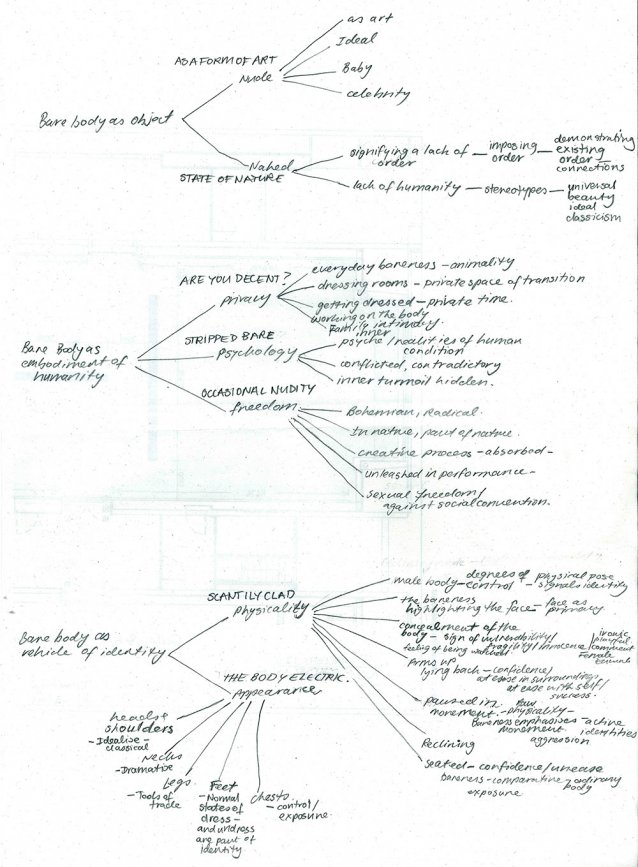 as art
Ideal
AS A FORM OF ART
Nude
Baby
celebrity
Bare body as object
Naked
STATE OF NATURE
signifying a lack of – imposing – demonstrating
order order existing
order –
connections
lack of humanity – stereotypes – universal
beauty
ideal
classicism
ARE YOU DECENT?
privacy
everyday bareness – animality
dressing rooms – private space of transition
getting dressed – private time.
working on the body
Family intimacy.
Bare Body as
embodiment of
humanity
STRIPPED BARE
psychology
inner
psyche / realities of human
condition
conflicted, contradictory
inner turmoil hidden.
OCCASIONAL NUDITY
freedom
Bohemian, radical.
In nature, part of nature.
creative process – absorbed –
unleashed in performance –
sexual freedom/
against social convention.
SCANTILY CLAD
physicality
male body – degrees of physical pose
control – signals identity
the bareness
highlighting the face – face as
primacy
concealment of the
body – sign of vulnerability/
fragility/ incidence/
feeling of being watched
ironic
playful
comment
Female
Arms up
lying back – confidence/
at ease in surroundings
at ease with self/
success.
paused in
movement – Raw
physicality –
Bareness emphasises – active
movement identities
aggression
Reclining
seated – confidence/unease
bareness – comparative – ordinary
exposure body
Bare body as
vehicle of identity
THE BODY ELECTRIC.
Appearance
heads &
shoulders
– Idealise –
classical
Necks
– Dramatise
Legs
– Tools of
trade
Feet
– Normal
states of
dress –
and undress
are part of
identity
Chests.
– control/
exposure.